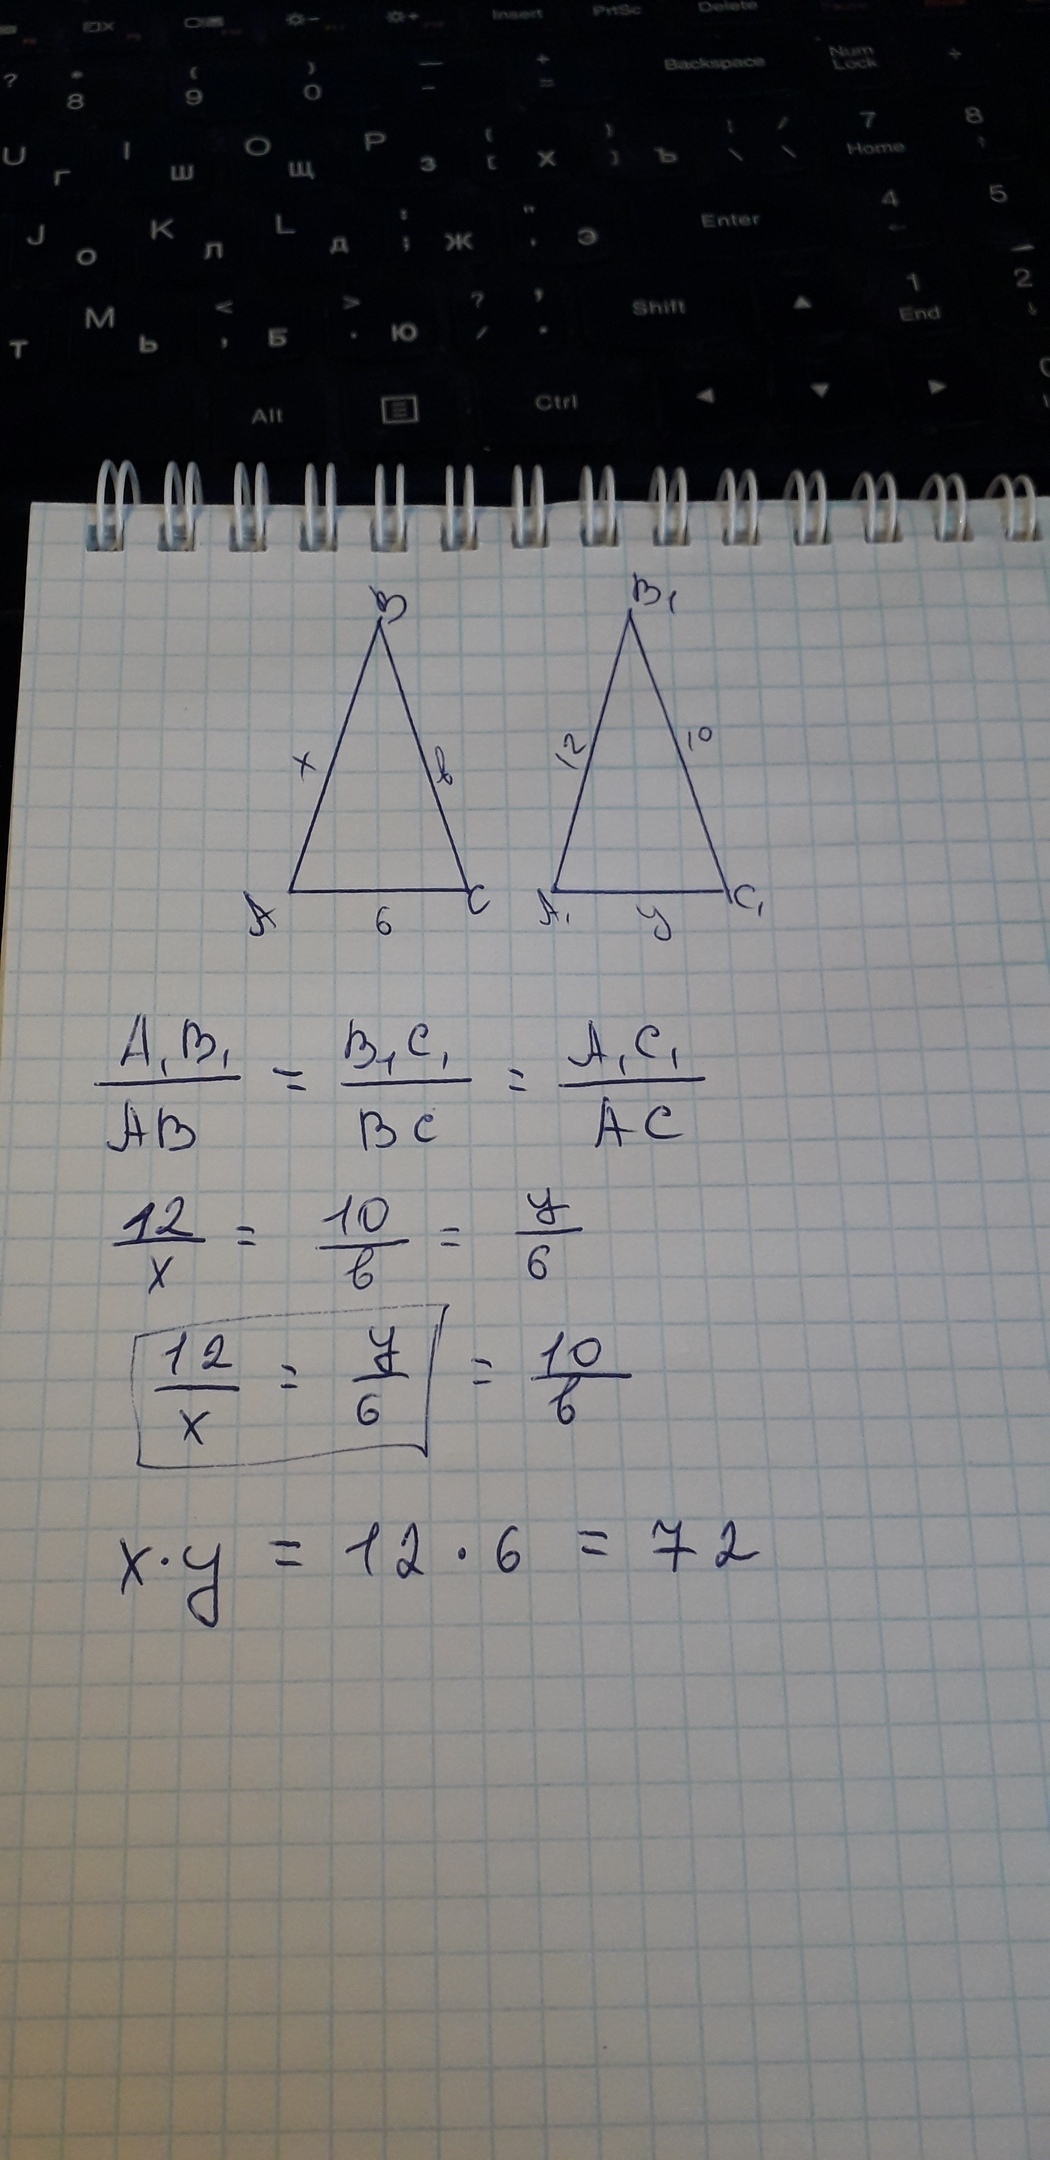 Insert PrtSc Delete
? * 8 ( 9 ) 0 — - + = Backspace Num Lock ÷
U Г I Ш O Щ P З { [ Х } ] Ъ 7 Home 8
J О K Л L Д : ; Ж " ' Э Enter 4 5
Т M Ь < , Б > . Ю ? / , . Shift ▲ 1 End 2
Alt Ctrl ◄ ▼ ►
B B₁
x в 12 10
A 6 C A₁ y C₁
A₁B₁/AB = B₁C₁/BC = A₁C₁/AC
12/x = 10/в = y/6
12/x = y/6 = 10/в
x·y = 12·6 = 72